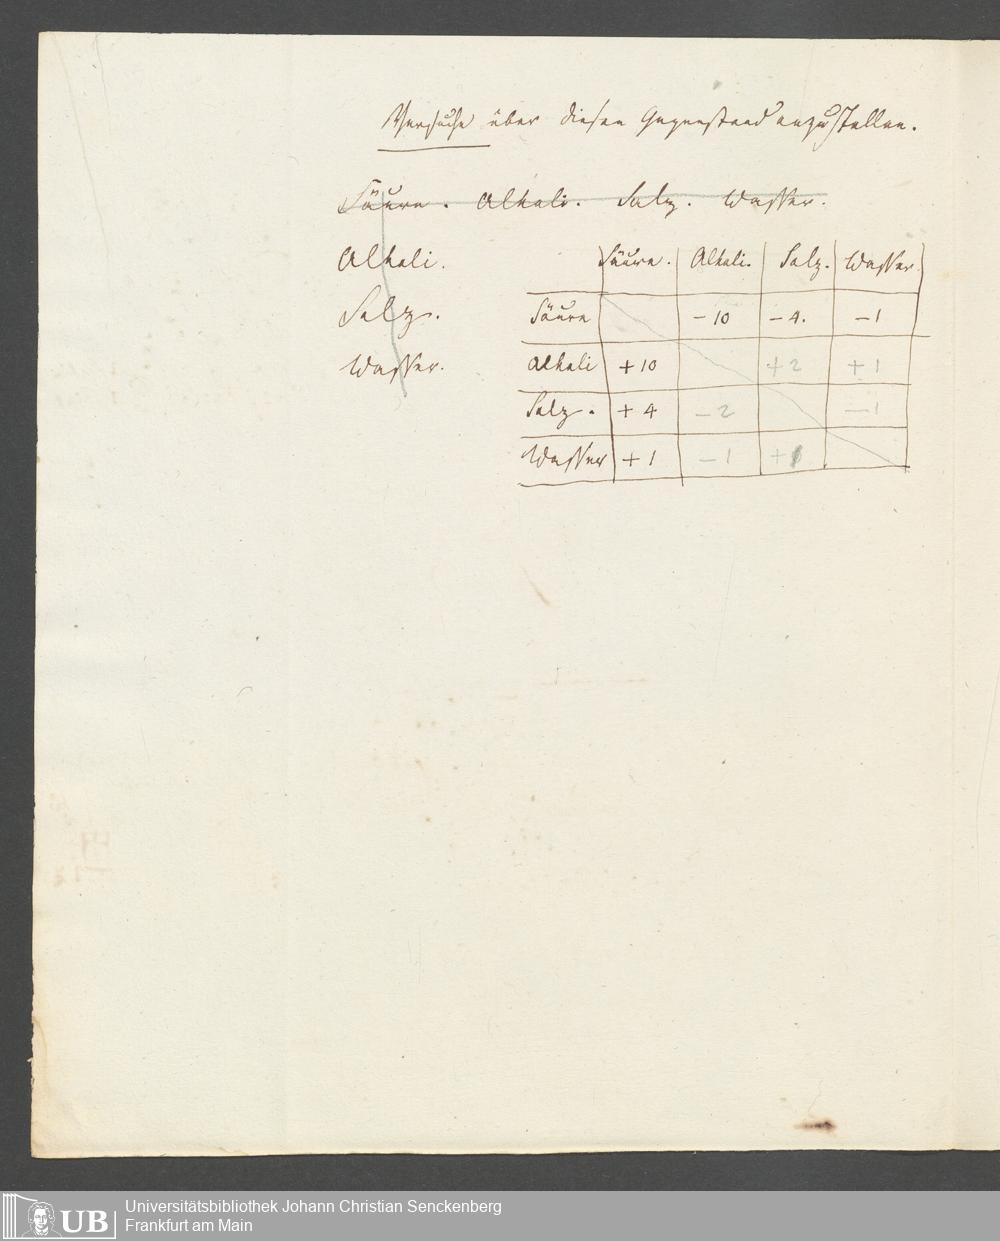 Versuche über diesen Gegenstand anzustellen.
Säure. Alkali. Salz. Wasser.
Alkali.
Salz.
Wasser.
Säure. Alkali. Salz. Wasser.
Säure - 10 - 4. - 1
Alkali + 10 + 2 + 1
Salz. + 4 - 2 - 1
Wasser + 1 - 1 + 1
UB
Universitätsbibliothek Johann Christian Senckenberg
Frankfurt am Main